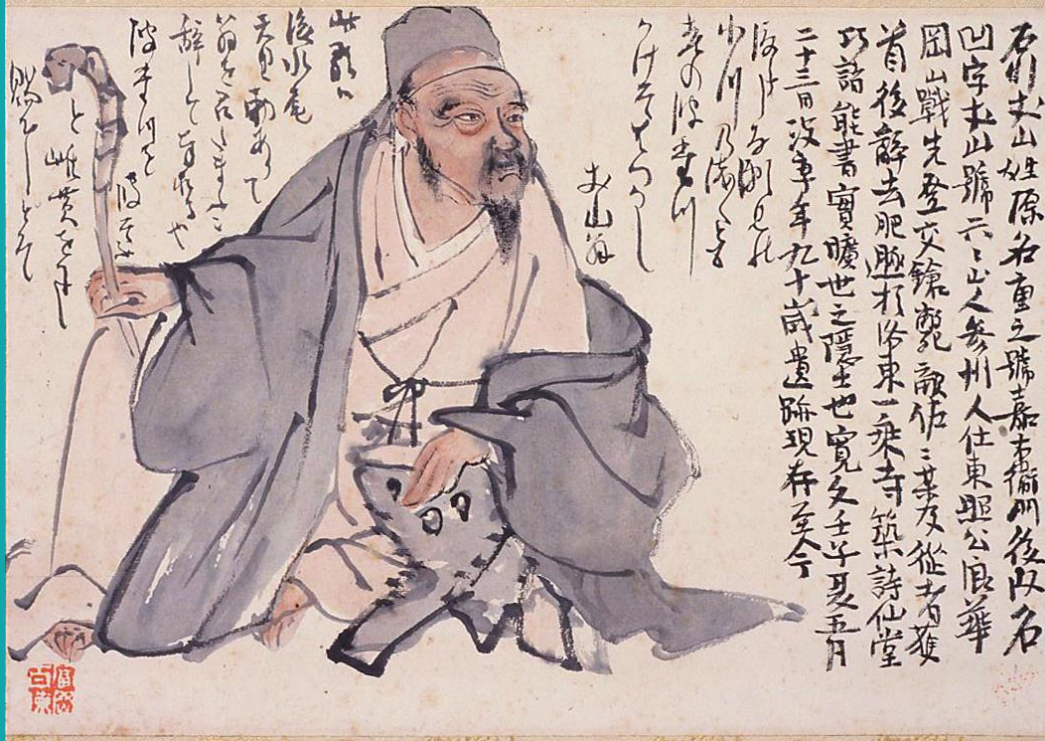 石川丈山姓源名重之號嘉右衛門後以名
凹字丈山號六々山人参州人仕東照公浪華
岡山戰先登交鎗斃敵佐々某及從者獲
首後辭去肥遯於洛東一乘寺築詩仙堂
巧詩能書實曠世之隱士也寛文壬子夏五月
二十三日没享年九十歳遺跡現存至今
渡らしな瀬見の
小川の浅くとも
老の波
かけそはつかし
丈山翁
此歌ハ
後水尾
天皇勅ありて
翁を召たまふに
辞して
と雌黄をし
賜ひしとそ